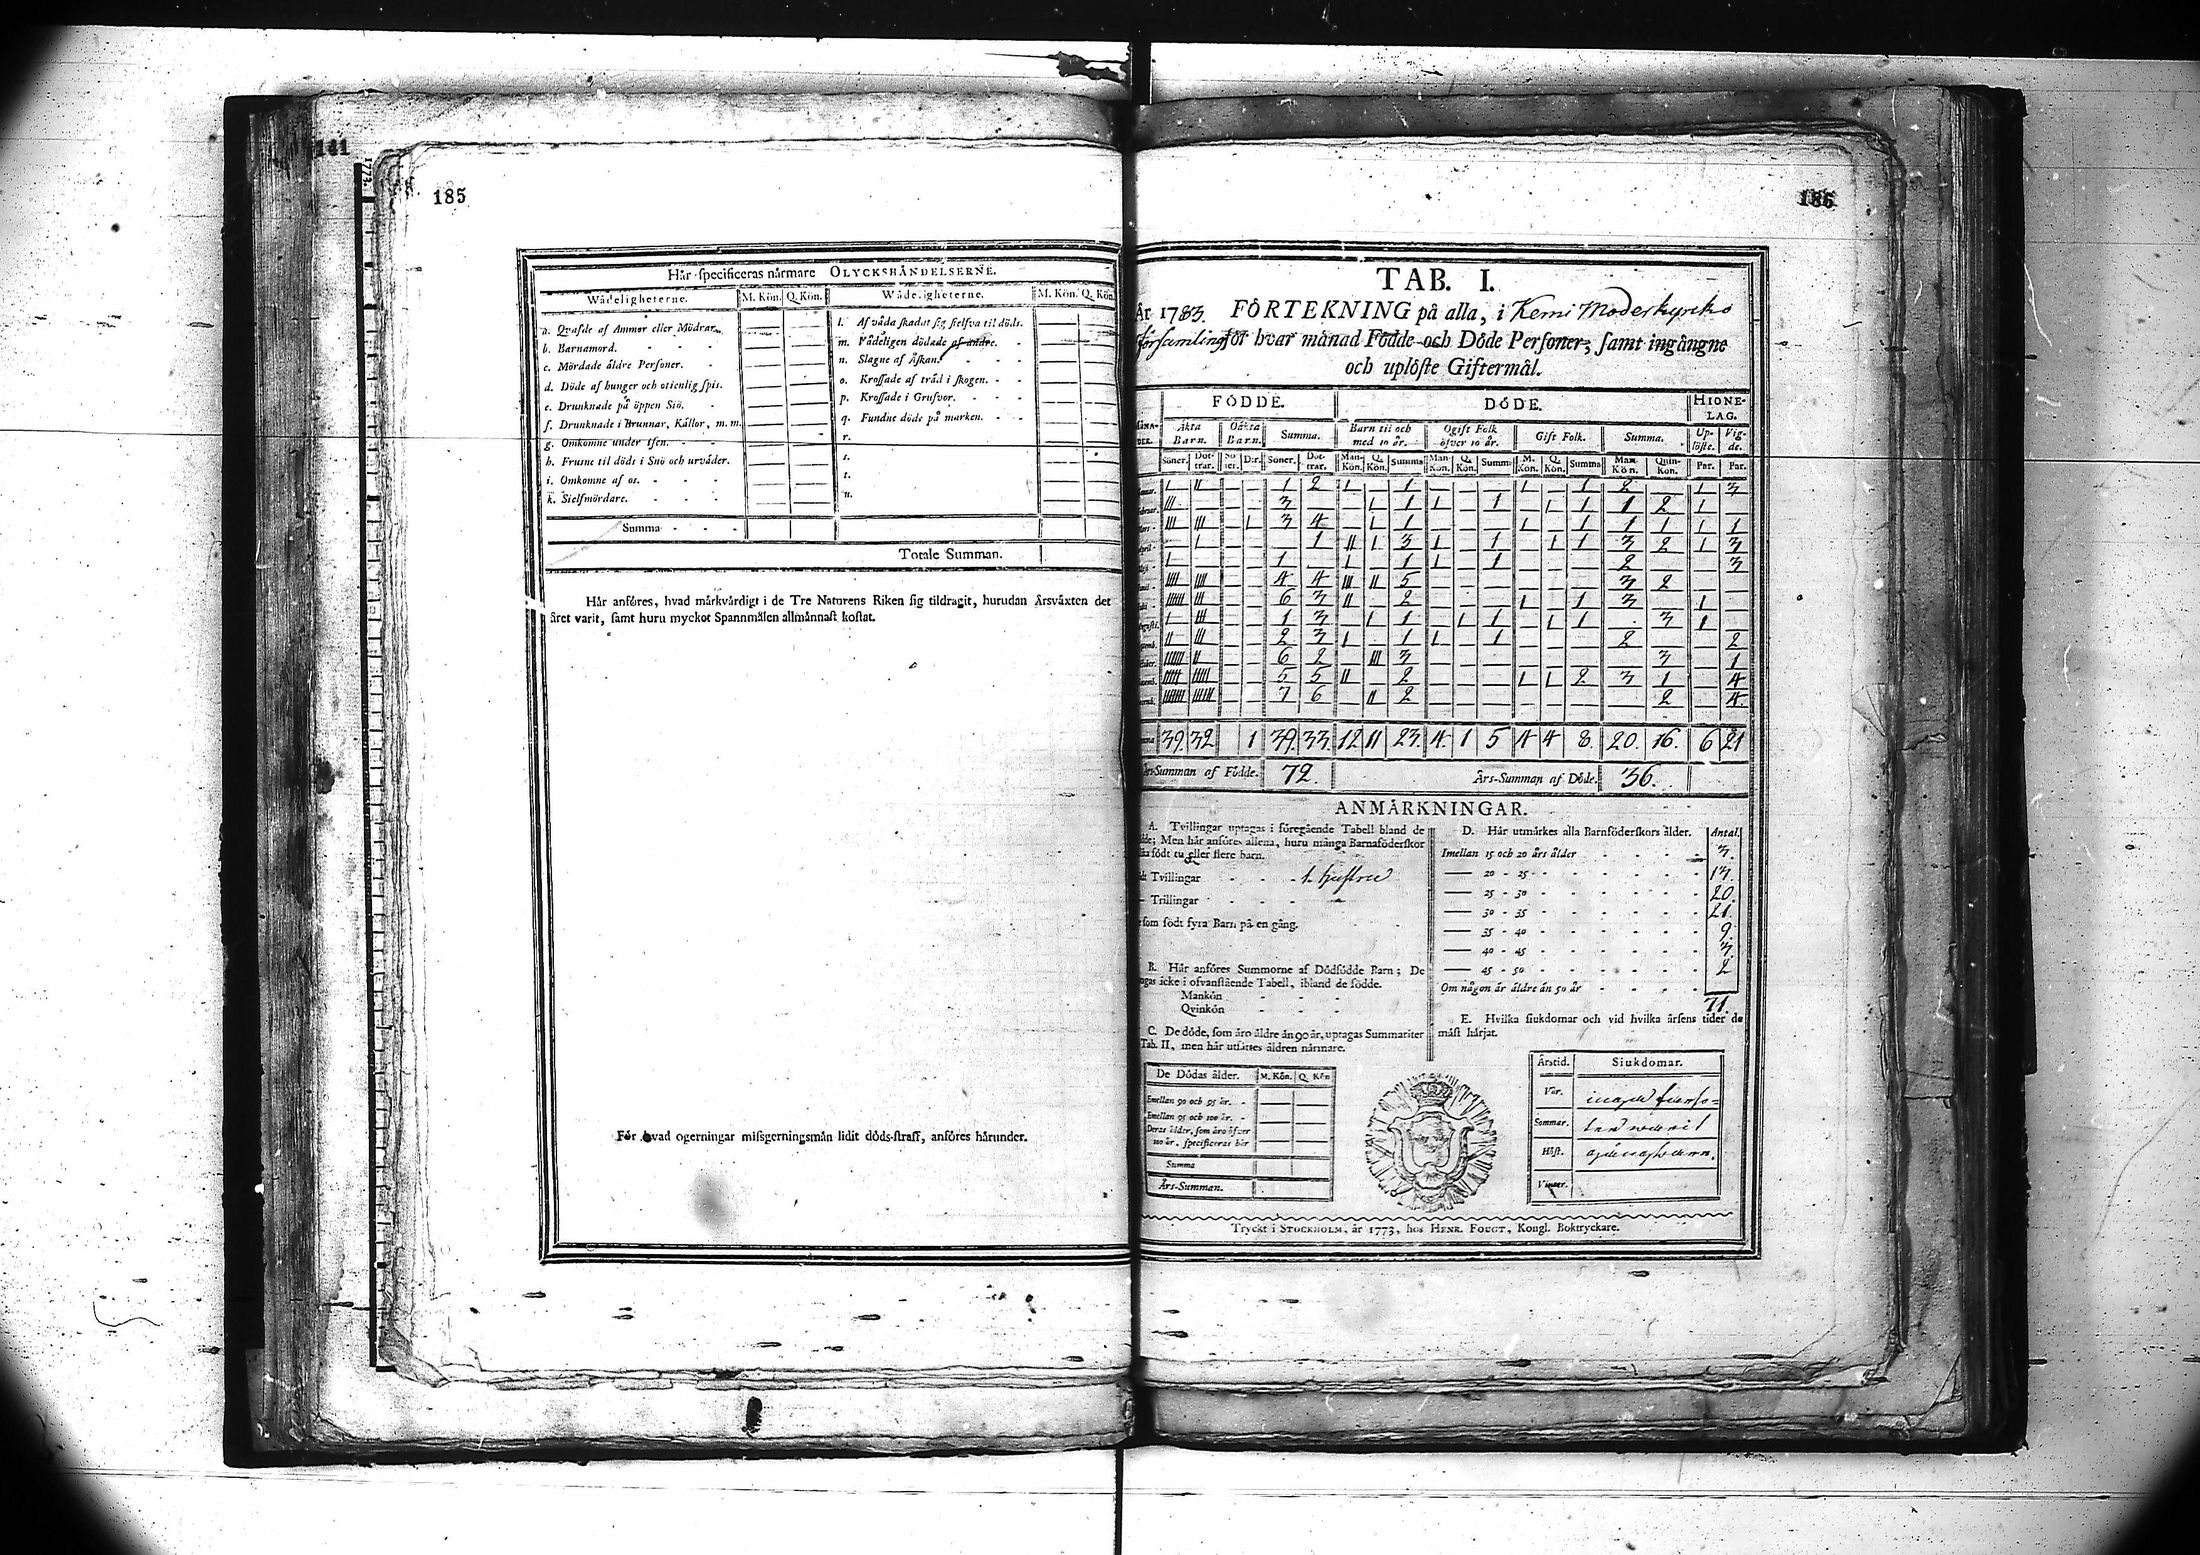 141
1773.
185
Hår specificeras nårmare OLYCKSHÅNDELSERNE.
Wådeligheterne. M. Kön. Q. Kön. Wådeligheterne. M. Kön. Q. Kön.
a. Qvafde af Ammor eller Mödrar.
b. Barnamord.
c. Mördade åldre Personer.
d. Döde af hunger och otienlig spis.
e. Drunknade på öppen Siö.
f. Drunknade i Brunnar, Kållor, m. m.
g. Omkomne under isen.
h. Frusne til döds i Snö och urvåder.
i. Omkomne af os.
k. Sielfmördare.
l. Af våda skadat sig sielfva til döds.
m. Vådeligen dödade af andre.
n. Slagne af Åskan.
o. Krossade af tråd i skogen.
p. Krossade i Grufvor.
q. Fundne döde på marken.
r.
s.
t.
u.
Summa
Totale Summan.
Hår anföres, hvad mårkvårdigt i de Tre Naturens Riken sig tildragit, hurudan Årsvåxten det
året varit, samt huru mycket Spannmålen allmånnast kostat.
För hvad ogerningar missgerningsmån lidit döds-straff, anföres hårunder.
186
TAB. I.
År 1783. FÖRTEKNING på alla, i Kemi Moderkyrko
församling för hvar månad Födde och Döde Personer, samt ingångne
och uplöste Giftermål.
FÖDDE. DÖDE. HIONE-
LAG.
Åkta Barn. Oåkta Barn. Summa. Barn til och med 10 år. Ogift Folk öfver 10 år. Gift Folk. Summa. Up-löste. Vig-de.
Söner. Döt-trar. Sö-ner. D:r. Söner. Döt-trar. Man-Kön. Q. Kön. Summa Man Kön. Q. Kön. Summa M. Kön. Q. Kön. Summa Man Kön. Quin-kön. Par. Par.
I II — — 1 2 I — 1 — — — I — 1 2 — 1 3
III — — — 3 — — I 1 I — 1 — I 1 1 2 1 —
III III — I 3 4 — I 1 — — — I — 1 1 1 1 1
— I — — — 1 II I 3 I — 1 — I 1 3 2 1 3
I — — — 1 — I — 1 I — 1 — — — 2 — — 3
IIII IIII — — 4 4 III II 5 — — — — — — 3 2 — —
IIIIII III — — 6 3 II — 2 — — — I — 1 3 — 1 —
I III — — 1 3 — I 1 — I 1 — I 1 — 3 1 —
II III — — 2 3 I — 1 I — 1 — — — 2 — — 2
IIIIII II — — 6 2 — III 3 — — — — — — — 3 — 1
IIIII IIIII — — 5 5 II — 2 — — — I I 2 3 1 — 4
IIIIIII IIIIII — — 7 6 — II 2 — — — — — — — 2 — 4
39. 32 1 39. 33. 12 11 23. 4. 1 5 4 4 8. 20. 16. 6 21
Års-Summan af Födde. 72. Års-Summan af Döde. 36.
ANMÅRKNINGAR.
A. Tvillingar uptagas i föregående Tabell bland de
Födde; Men hår anföres allena, huru många Barnaföderskor
födt tu eller flere barn.
Tvillingar 1. hustru
Trillingar —
som födt fyra Barn på en gång.
B. Hår anföres Summorne af Dödfödde Barn; De
icke i ofvanstående Tabell, ibland de födde.
Mankön
Qvinkön
C. De döde, som åro åldre ån 90 år, uptagas Summariter
Tab. II, men hår utsåttes åldren nårmare.
De Dödas ålder. M. Kön. Q. Kön
Emellan 90 och 95 år.
Emellan 95 och 100 år.
Deras ålder, som åro öfver
100 år, specificeras hår
Summa
Års-Summan.
D. Hår utmårkes alla Barnföderskors ålder. Antal.
Imellan 15 och 20 års ålder 3.
— 20 - 25 13.
— 25 - 30 20.
— 30 - 35 21.
— 35 - 40 9.
— 40 - 45 3.
— 45 - 50 2
Om någon år åldre ån 50 år
71.
E. Hvilka siukdomar och vid hvilka årsens tider de
måst hårjat.
Årstid. Siukdomar.
Vår.
Sommar.
Höst.
Vinter.
Tryckt i STOCKHOLM, år 1773, hos HENR. FOUGT, Kongl. Boktryckare.